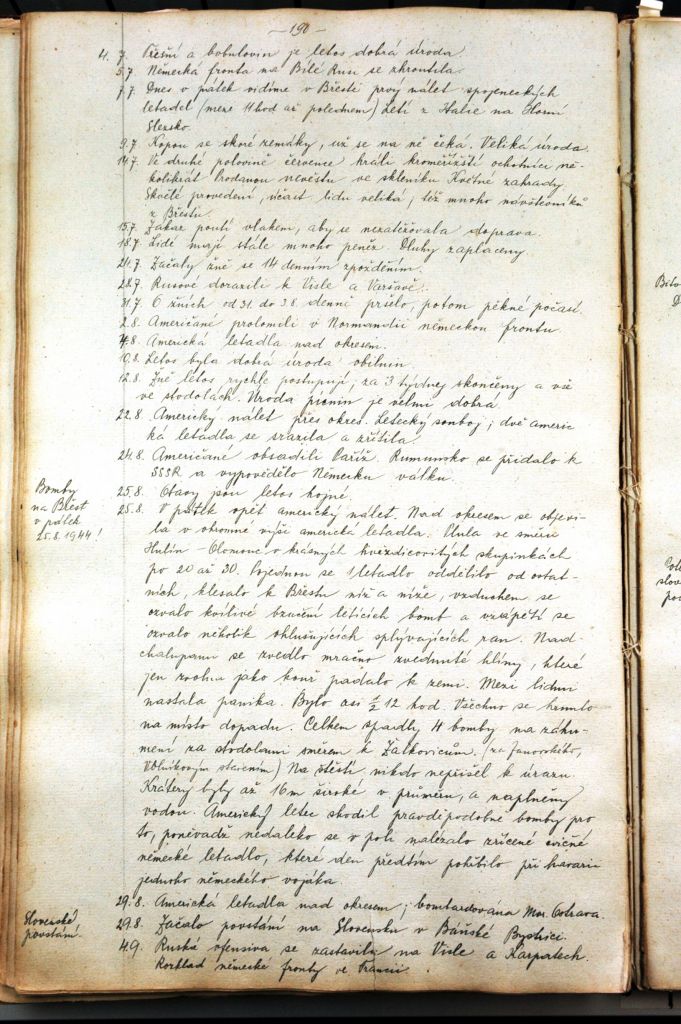 — 190 —
4. 7. Třešní a bobulovin je letos dobrá úroda.
5.7. Německá fronta na Bílé Rusi se zhroutila.
7.7. Dnes v pátek vidíme v Břestě prvý nálet spojeneckých
letadel (mezi 11 hod až polednem) letí z Italie na Horní
Slezsko.
9.7. Kopou se skoré zemáky, už se na ně čeká. Veliká úroda.
14.7. Ve druhé polovině července hráli kroměřížští ochotníci ně-
kolikrát Prodanou nevěstu ve skleníku Květné zahrady.
Skvělé provedení, účast lidu veliká, též mnoho návštěvníků
z Břestu.
15.7. Zákaz poutí vlakem, aby se nezatěžovala doprava.
18.7. Lidé mají stále mnoho peněz. Dluhy zaplaceny.
21.7. Začaly žně se 14 denním zpožděním.
28.7. Rusové dorazili k Visle a Varšavě.
31.7. O žních od 31. do 3.8. denně pršelo, potom pěkné počasí.
2.8. Američané prolomili v Normandii německou frontu.
4.8. Americká letadla nad okresem.
10.8. Letos byla dobrá úroda obilnin.
12.8. Žně letos rychle postupují; za 3 týdny skončeny a vše
ve stodolách. Úroda pícnin je velmi dobrá.
22.8. Americký nálet přes okres. Letecký souboj; dvě americ
ká letadla se srazila a zřítila.
24.8. Američané obsadili Paříž. Rumunsko se přidalo k
SSSR a vypovědělo Německu válku.
25.8. Otavy jsou letos hojné.
Bomby
na Břest
v pátek
25.8.1944!
25.8. V pátek opět americký nálet. Nad okresem se objevi-
la v ohromné výši americká letadla. Plula ve směru
Hulín – Olomouc v krásných hvězdicovitých skupinkách
po 20 až 30. Pojednou se 1 letadlo oddělilo od ostat-
ních, klesalo k Břestu níž a níže, vzduchem se
ozvalo kvílivé bzučení letících bomb a vzápětí se
ozvalo několik ohlušujících splývajících ran. Nad
chalupami se zvedlo mračno zvednuté hlíny, které
jen zvolna jako kouř padalo k zemi. Mezi lidmi
nastala panika. Bylo asi ½ 12 hod. Všechno se hrnulo
na místo dopadu. Celkem spadly 4 bomby na záhu-
mení za stodolami směrem k Žalkovicům. (za Janovského,
stavením) Na štěstí, nikdo nepřišel k úrazu.
Krátery byly až 16 m široké v průměru, a naplněny
vodou. Americký letec shodil pravděpodobně bomby pro
to, poněvadž nedaleko se v poli nalézalo zřícené cvičné
německé letadlo, které den předtím pohřbilo při havarii
jednoho německého vojáka.
29.8. Americká letadla nad okresem; bombardována Mor. Ostrava.
Slovenské
povstání.
29.8. Začalo povstání na Slovensku v Báňské Bystrici.
4.9. Ruská ofensiva se zastavila na Visle a Karpatech.
Rozklad německé fronty ve Francii.